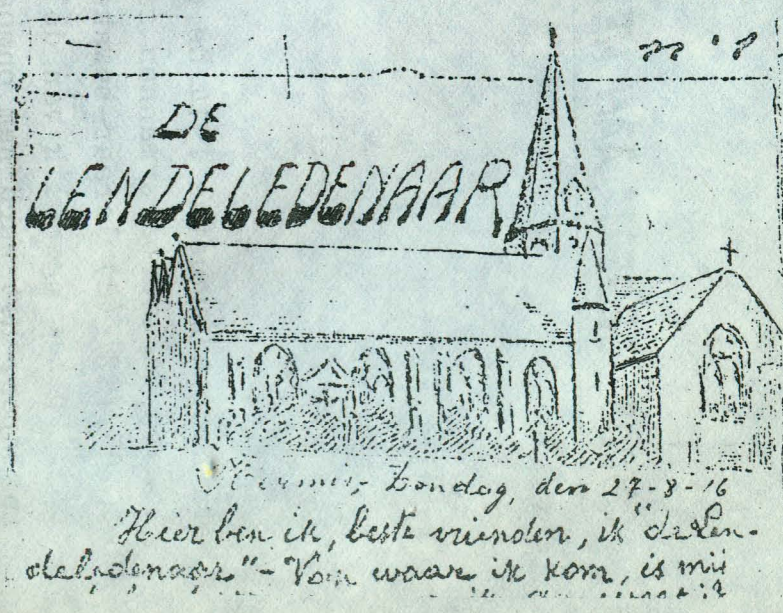 DE
LENDELEDENAAR
Kermis, Zondag, den 27-8-16
Hier ben ik, beste vrienden, ik "de Len-
deledenaar" - Van waar ik kom, is mij